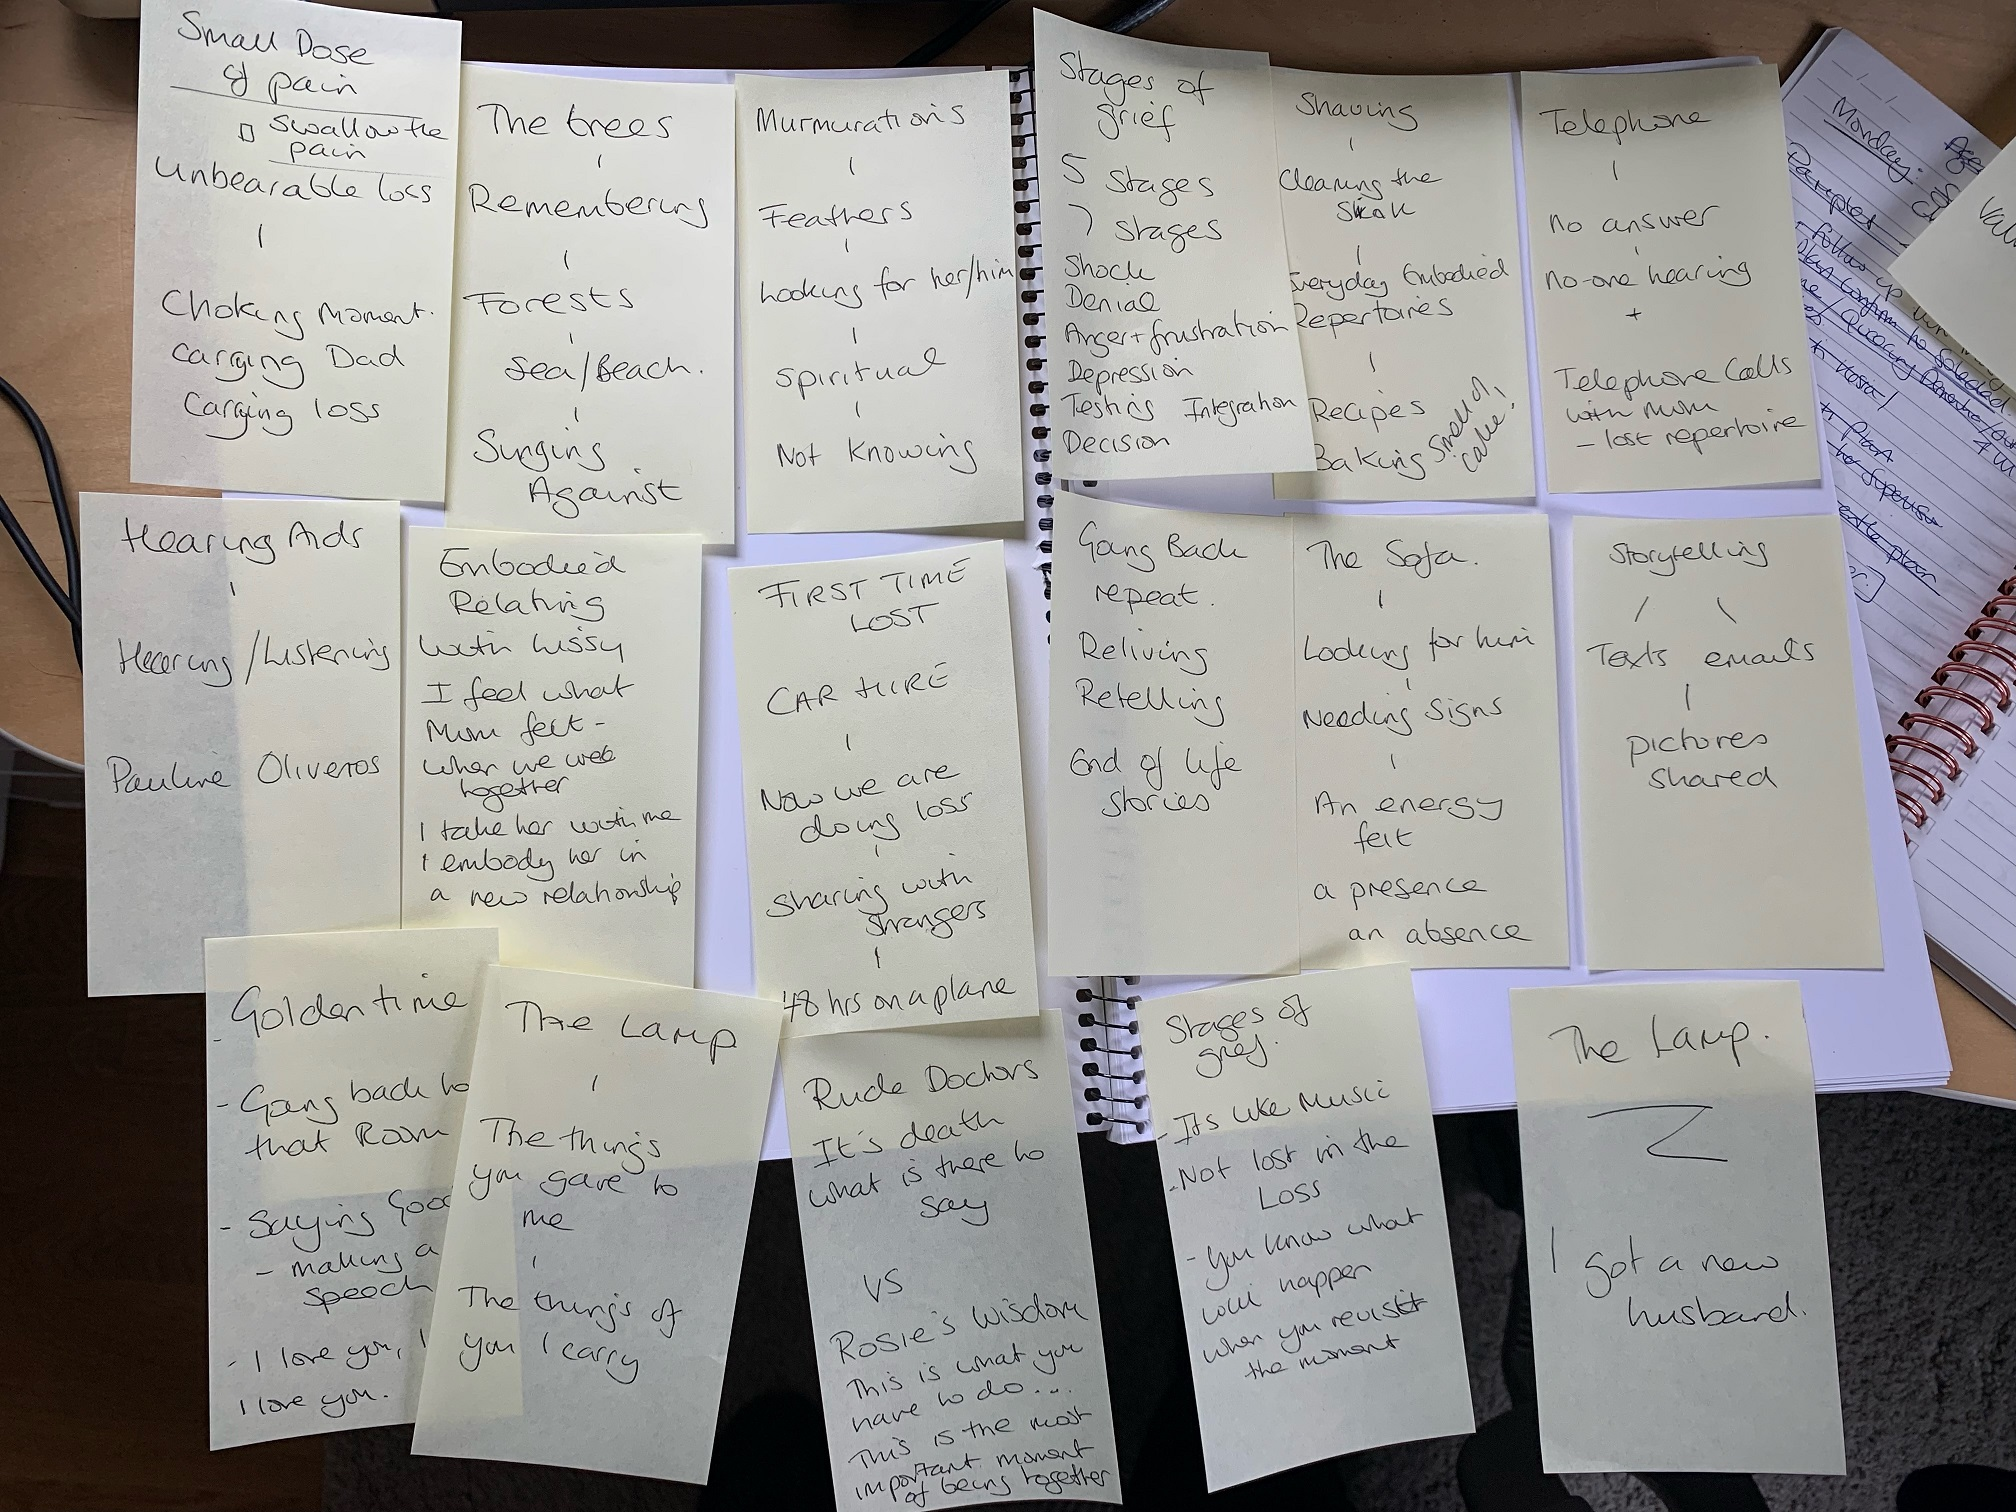 Small Dose
of pain
Swallow the
pain
Unbearable loss
Choking Moment.
Carrying Dad
Carrying loss
The trees
Remembering
Forests
Sea/Beach.
Surging
Against
Murmurations
Feathers
Looking for her/him
Spiritual
Not Knowing
Stages of
grief
5 stages
7 stages
Shock
Denial
Anger + frustration
Depression
Testing Integration
Decision
Shaving
Cleaning the
Sink
Everyday Embodied
Repertoires
Recipes
Baking
Smell of
cake!
Telephone
no answer
no-one hearing
+
Telephone Calls
with mum
- lost repertoire
Monday:
Hearing Aids
Hearing/Listening
Pauline Oliveros
Embodied
Relating
with Lissy
I feel what
Mum felt -
when we were
together
I take her with me
I embody her in
a new relationship
FIRST TIME
LOST
CAR HIRE
Now we are
doing loss
Sharing with
strangers
48 hrs on a plane
Going Back
repeat.
Reliving
Retelling
End of life
stories
The Sofa.
Looking for him
Needing Signs
An energy
felt
a presence
an absence
Storytelling
Texts emails
pictures
shared
Golden time
- Going back to
that Room
- Saying Goo
- making a
speech
- I love you, I
I love you.
The Lamp
The things
you gave to
me
The things of
you I carry
Rude Doctors
It's death
what is there to
say
VS
Rosie's Wisdom
This is what you
have to do...
This is the most
important moment
of being together
Stages of
grief.
- Its like Music
- Not lost in the
Loss
- You know what
will happen
when you revisit
the moment
The Lamp.
I got a new
husband.